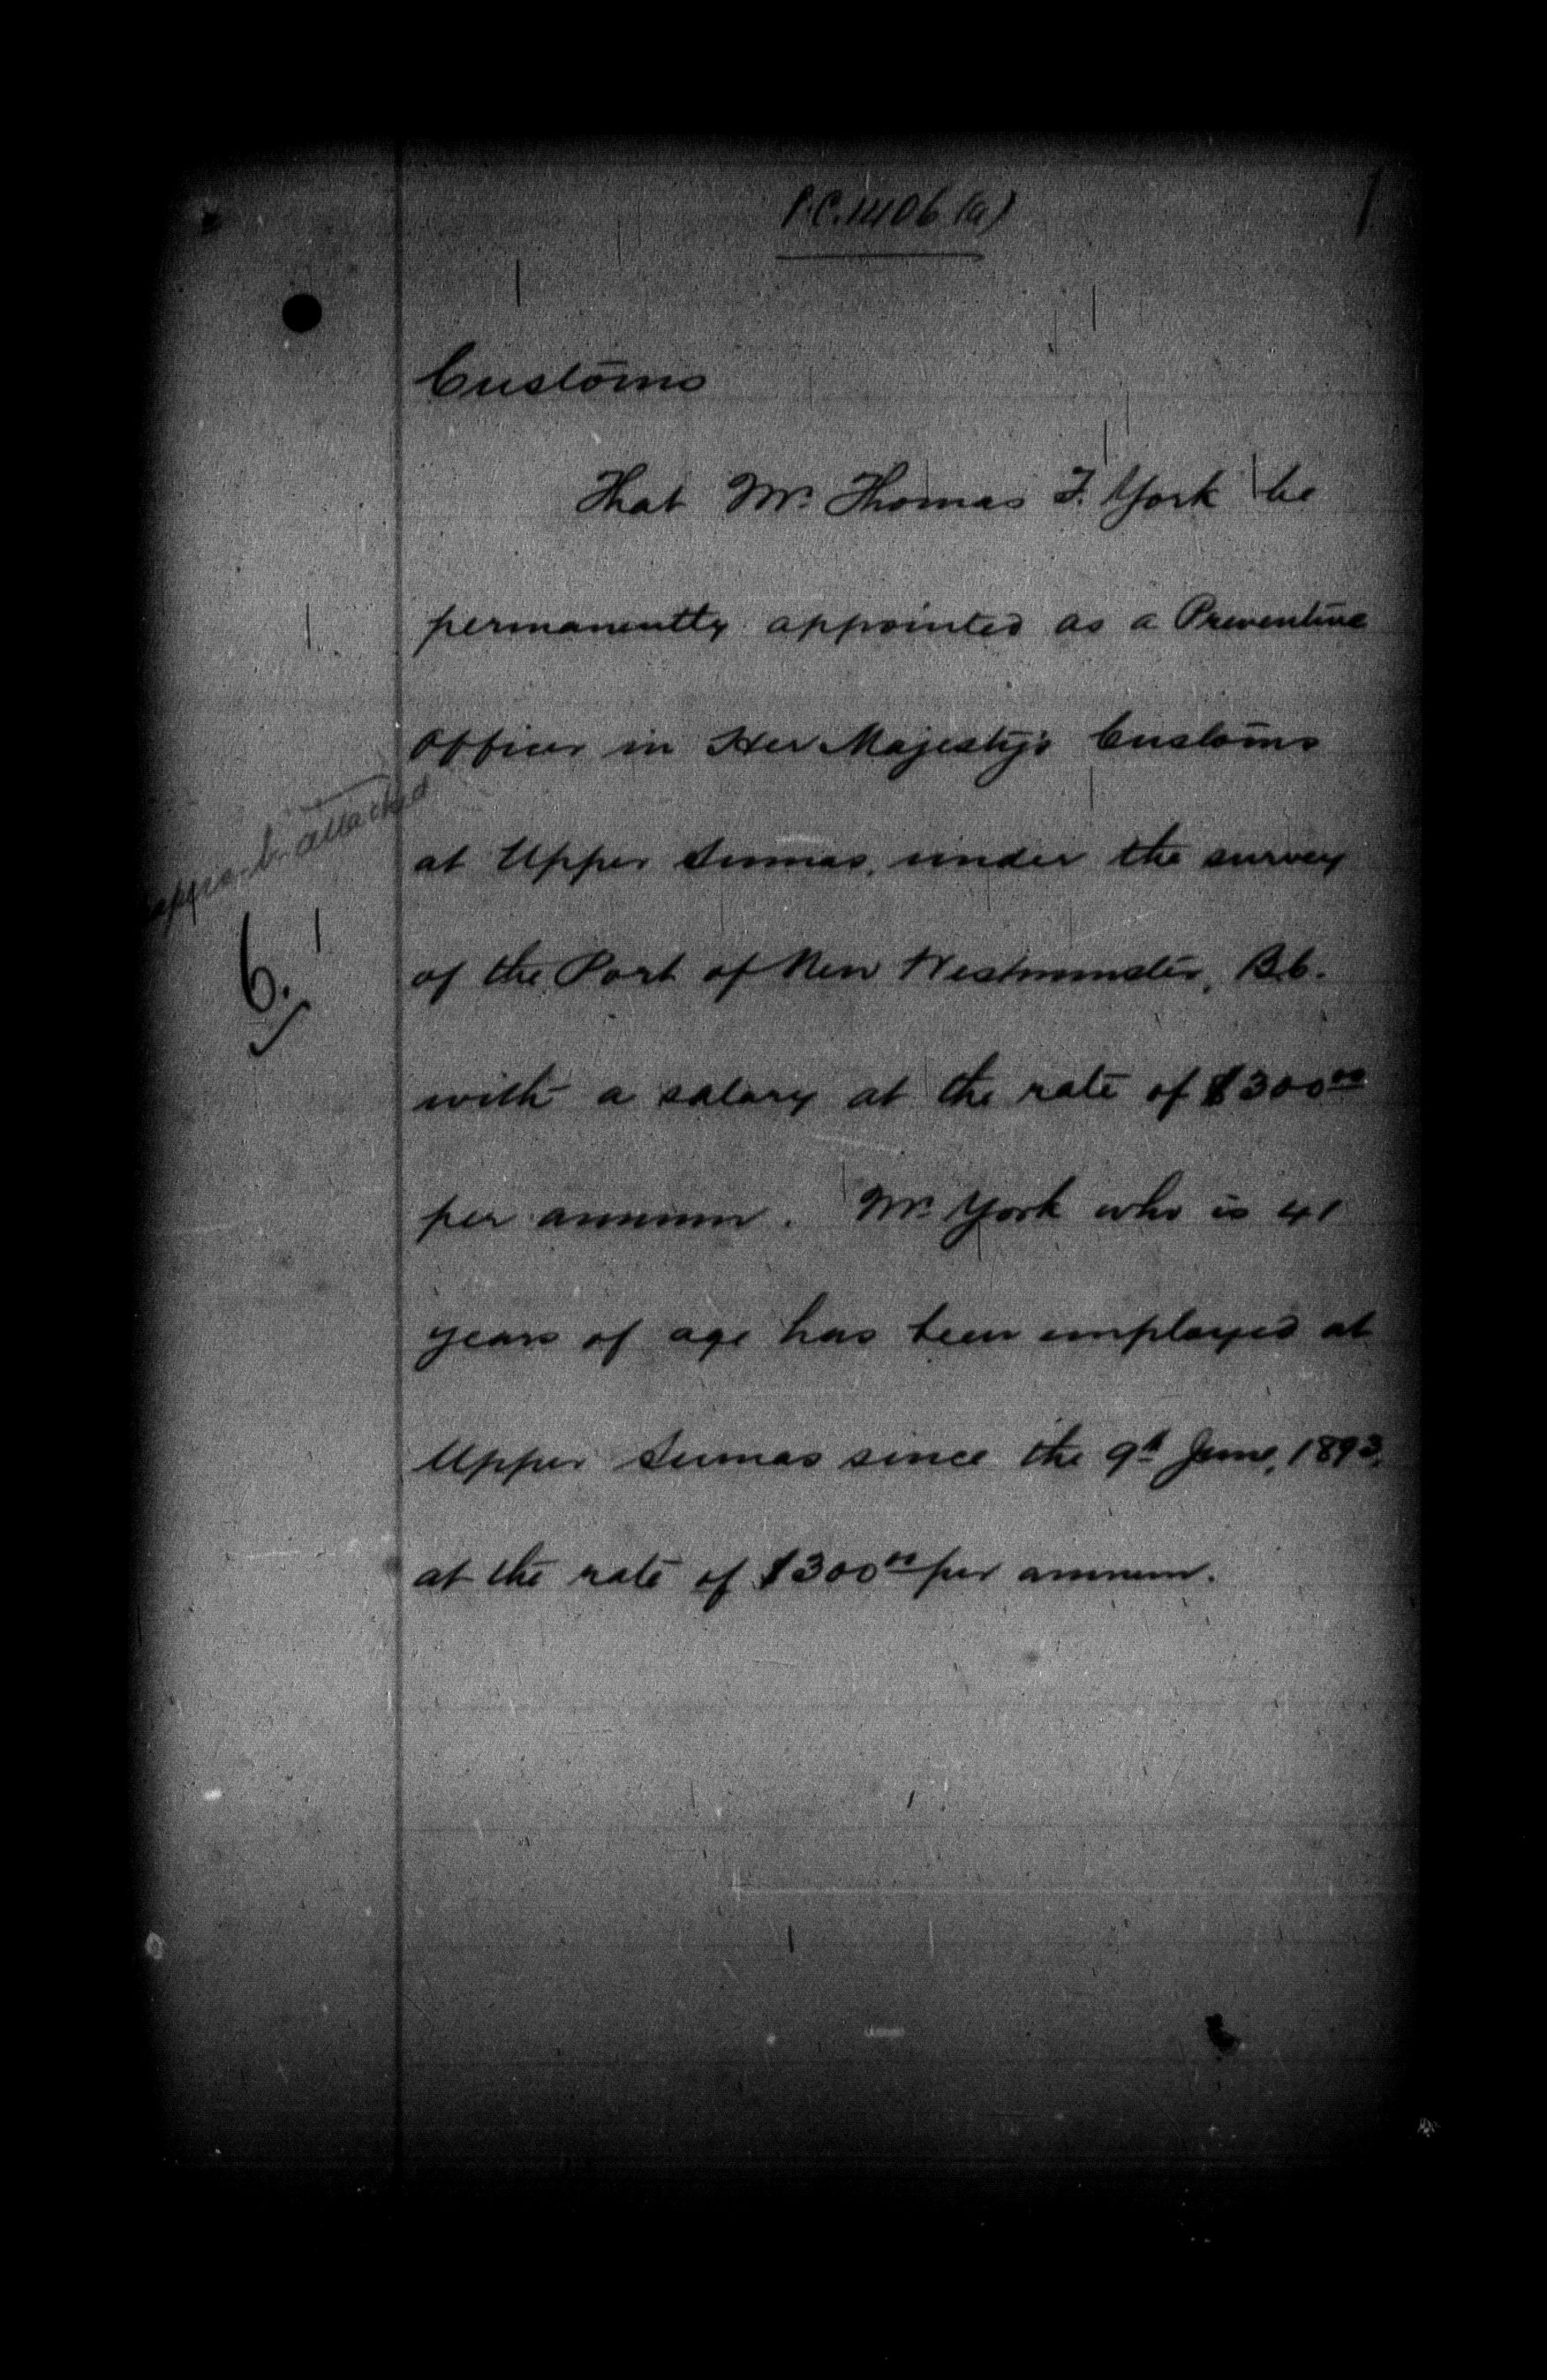 P.C. 1406 (a)
Customs
That Mr. Thomas F. York be
permanently appointed as a Preventive
Officer in Her Majesty's Customs
attached
at Upper Sumas, under the survey
6.
of the Port of New Westminster, B.C.
with a salary at the rate of $300.00
per annum. Mr. York who is 41
years of age has been employed at
Upper Sumas since the 9th June, 1893,
at the rate of $300.00 per annum.